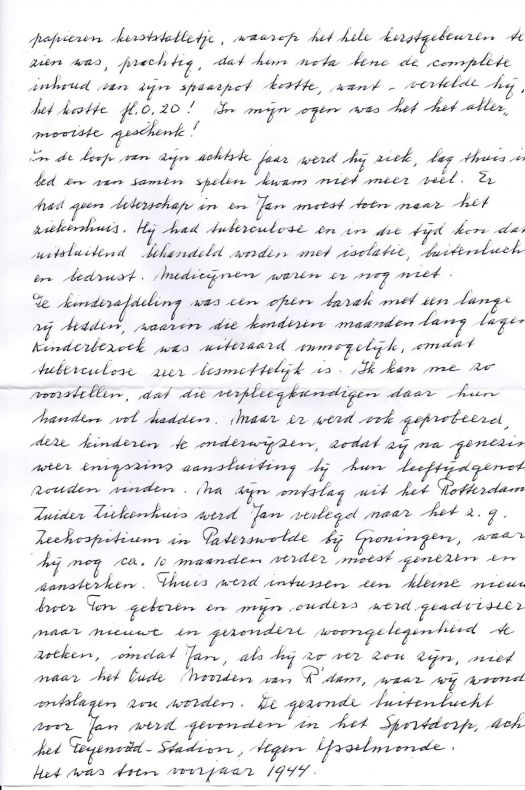 papieren kerststalletje, waarop het hele kerstgebeuren te
zien was, prachtig, dat hem nota bene de complete
inhoud van zijn spaarpot kostte, want - vertelde hij,
het kostte fl. 0,20! In mijn ogen was het het aller-
mooiste geschenk!
In de loop van zijn achtste jaar werd hij ziek, lag thuis in
bed en van samen spelen kwam niet meer veel. Er
trad geen beterschap in en Jan moest toen naar het
ziekenhuis. Hij had tuberculose en in die tijd kon dat
uitsluitend behandeld worden met isolatie, buitenluch
en bedrust. Medicijnen waren er nog niet.
De kinderafdeling was een open barak met een lange
rij bedden, waarin die kinderen maanden lang lagen
Kinderbezoek was uiteraard onmogelijk, omdat
tuberculose zeer besmettelijk is. Ik kan me zo
voorstellen, dat die verpleegkundigen daar hun
handen vol hadden. Maar er werd ook geprobeerd,
deze kinderen te onderwijzen, zodat zij na genezin
weer enigszins aansluiting bij hun leeftijdgenot
zouden vinden. Na zijn ontslag uit het Rotterdam
Zuider Ziekenhuis werd Jan verlegd naar het z.g.
Zeehospitium in Paterswolde bij Groningen, waar
hij nog ca. 10 maanden verder moest genezen en
aansterken. Thuis werd intussen een kleine nieuw
broer Ton geboren en mijn ouders werd geadviseer
naar nieuwe en gezondere woongelegenheid te
zoeken, omdat Jan, als hij zo ver zou zijn, niet
naar het Oude Noorden van R'dam, waar wij woond
ontslagen zou worden. De gezonde buitenlucht
voor Jan werd gevonden in het Sportdorp, ach
het Feyenoord-Stadion, tegen IJsselmonde.
Het was toen voorjaar 1944.